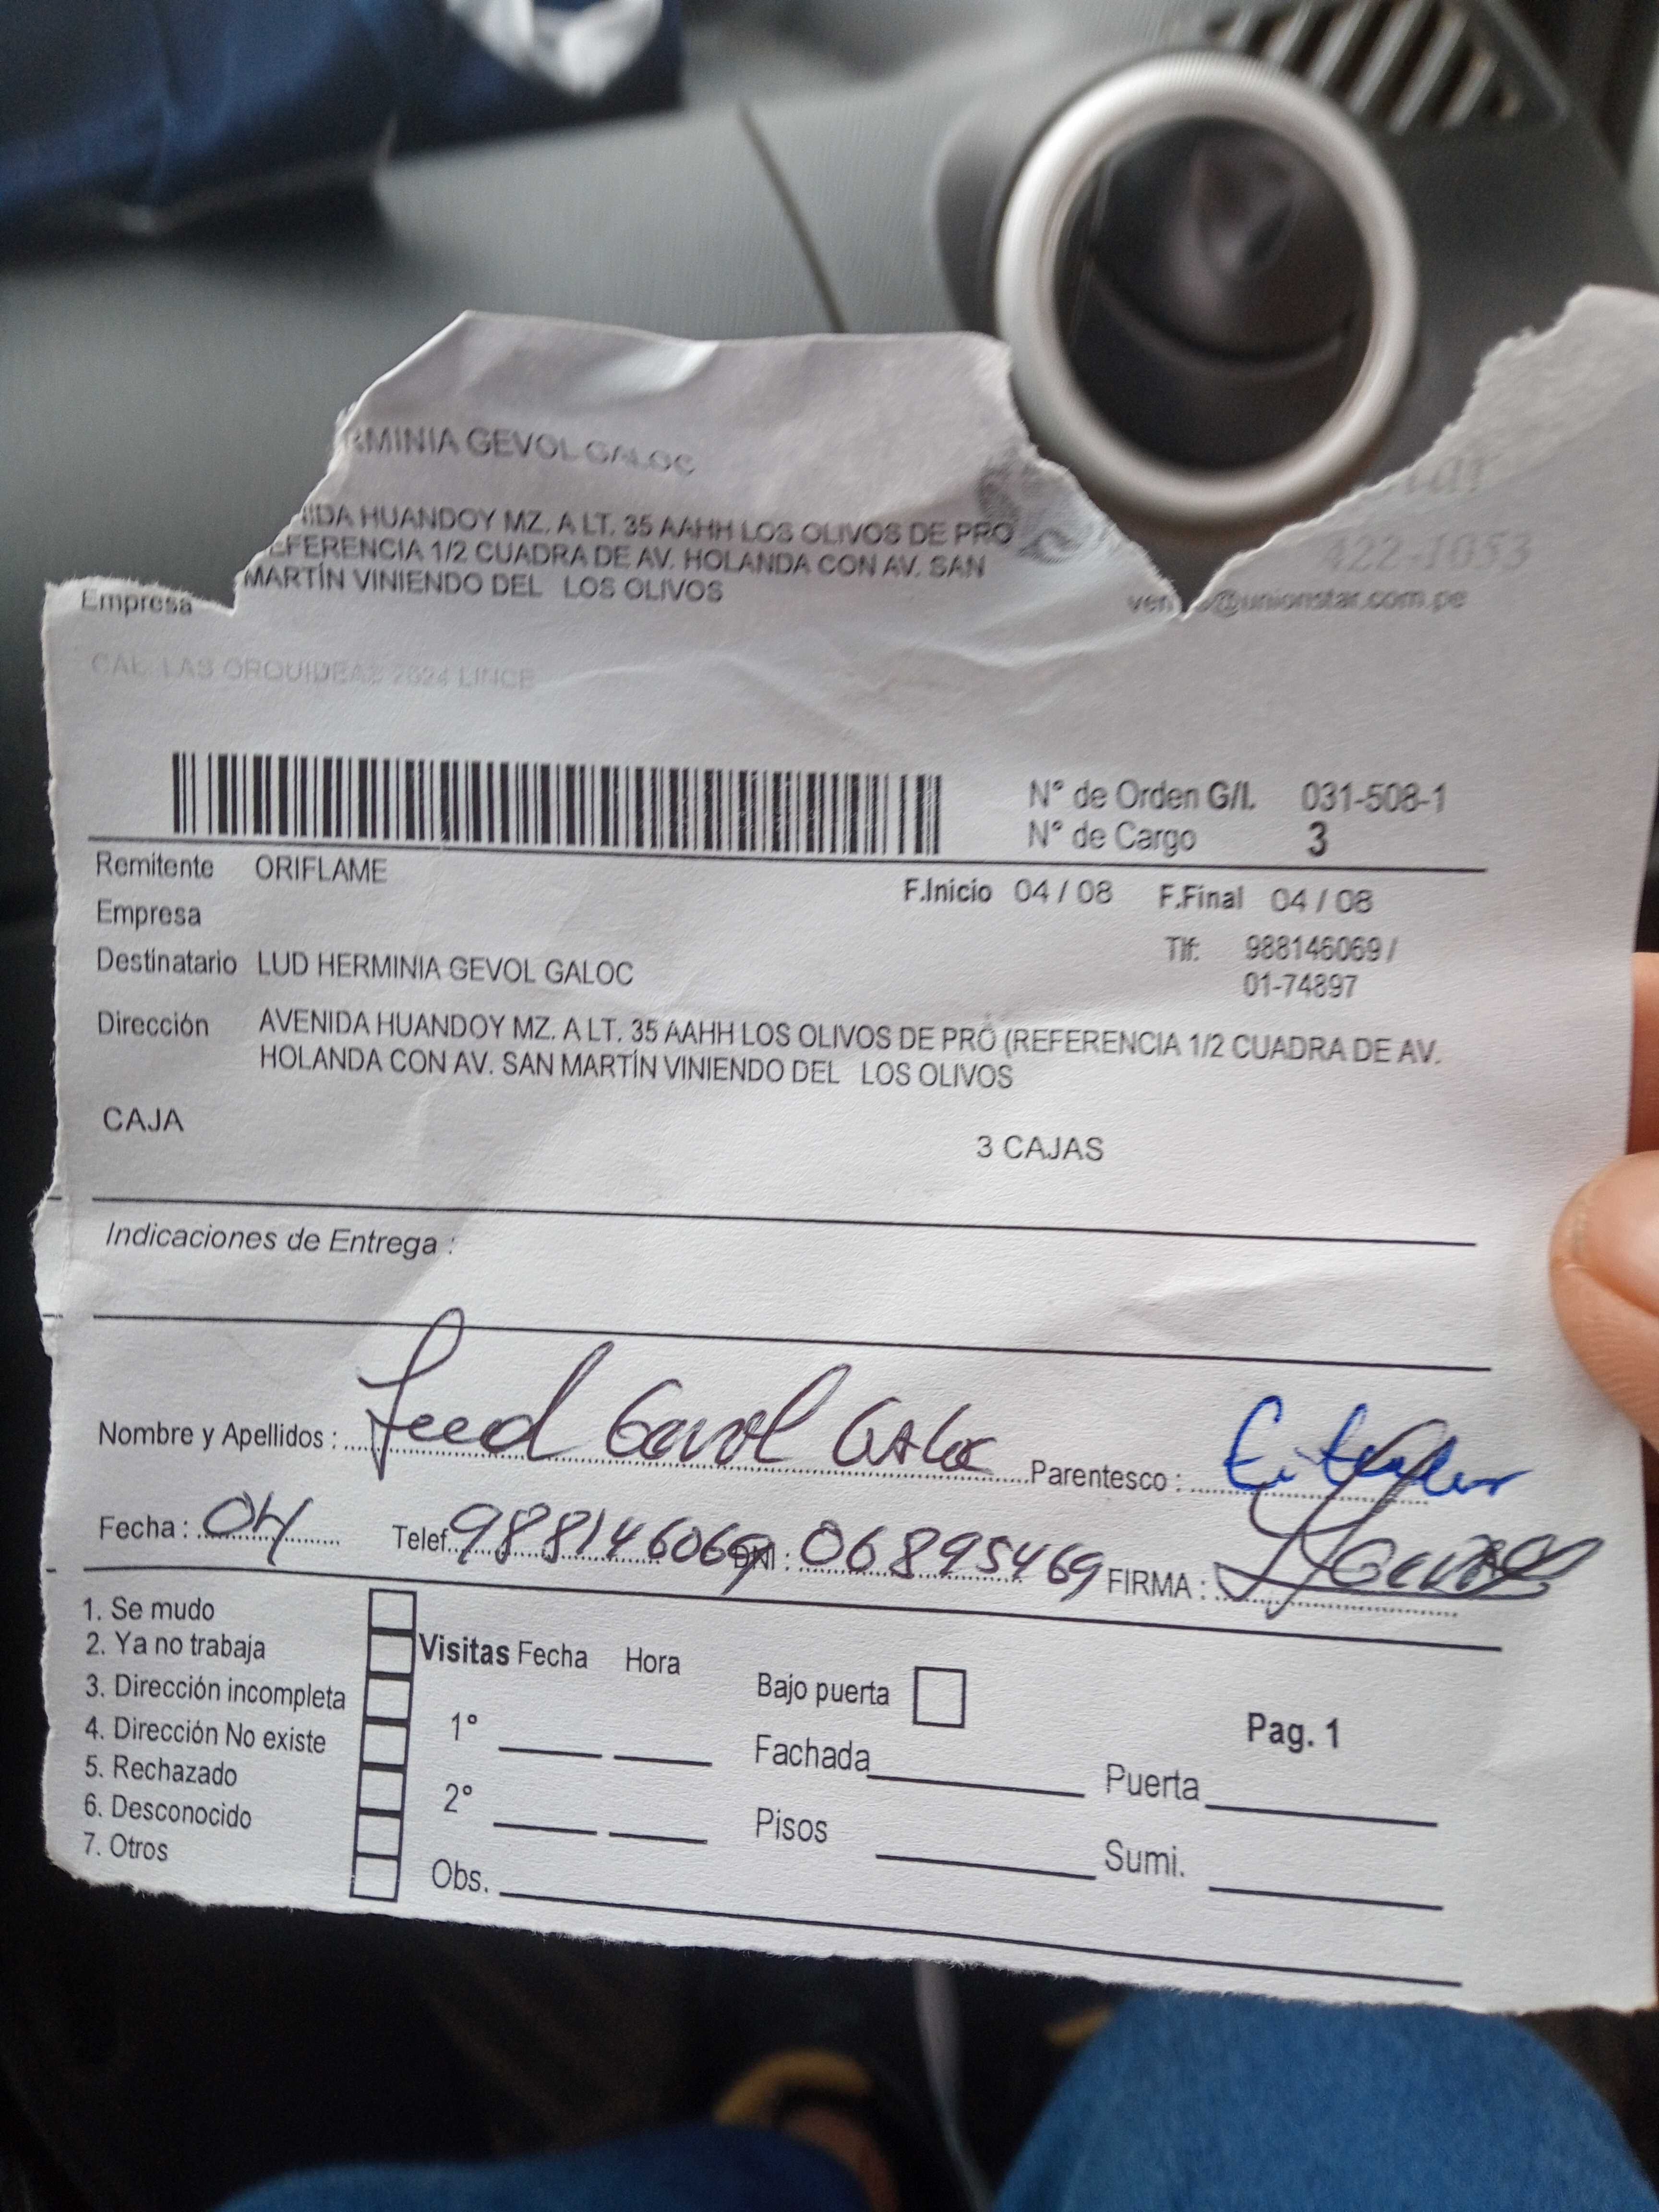 RMINIA GEVOL GALOC
IDA HUANDOY MZ. A LT. 35 AAHH LOS OLIVOS DE PRO
EFERENCIA 1/2 CUADRA DE AV. HOLANDA CON AV. SAN
MARTÍN VINIENDO DEL LOS OLIVOS
422-1053
Empresa
@unionstar.com.pe
CAL. LAS ORQUIDEAS 2624 LINCE
N° de Orden G/I. 031-508-1
N° de Cargo 3
Remitente ORIFLAME
F.Inicio 04 / 08 F.Final 04 / 08
Empresa
Destinatario LUD HERMINIA GEVOL GALOC
Tlf: 988146069 /
01-74897
Dirección AVENIDA HUANDOY MZ. A LT. 35 AAHH LOS OLIVOS DE PRO (REFERENCIA 1/2 CUADRA DE AV.
HOLANDA CON AV. SAN MARTÍN VINIENDO DEL LOS OLIVOS
CAJA
3 CAJAS
Indicaciones de Entrega :
Nombre y Apellidos : Gevol Galoc Parentesco :
Fecha : 04 Telef. 988146069 DNI : 06895469 FIRMA :
1. Se mudo
2. Ya no trabaja
3. Dirección incompleta
4. Dirección No existe
5. Rechazado
6. Desconocido
7. Otros
Visitas Fecha Hora
1°
2°
Obs.
Bajo puerta
Fachada
Pisos
Pag. 1
Puerta
Sumi.